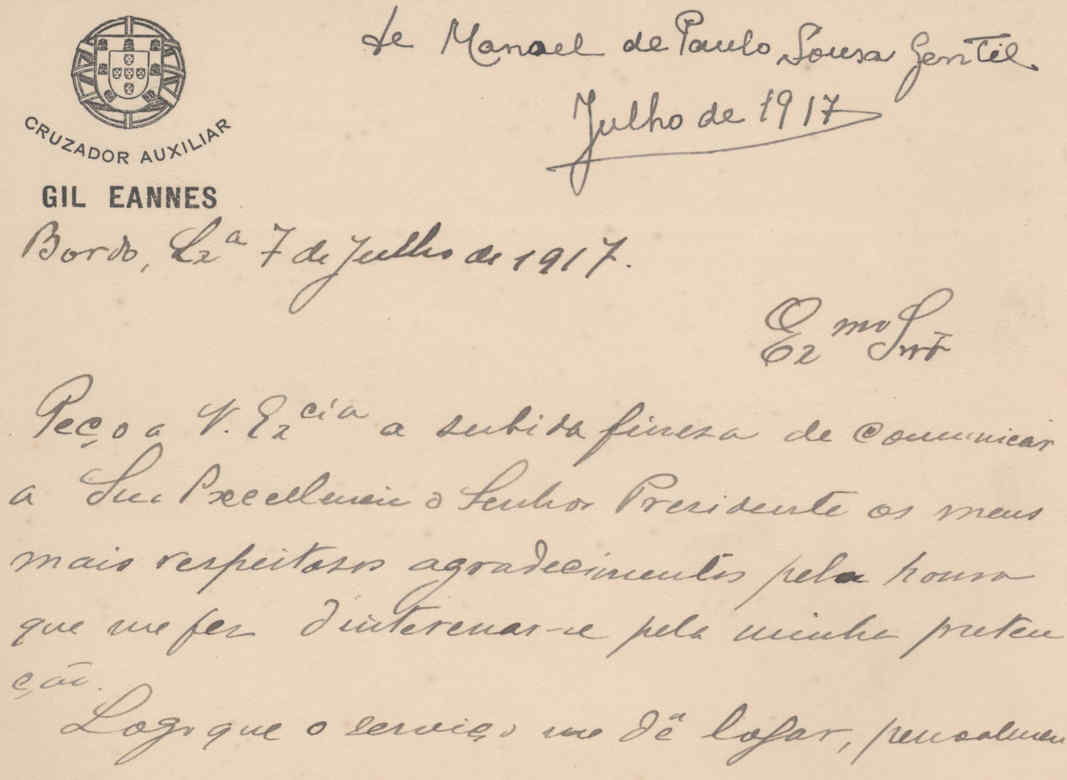 de Manoel de Paulo Sousa Gentil
Julho de 1917
CRUZADOR AUXILIAR
GIL EANNES
Bordo, Lxª 7 de Julho de 1917.
Exmo Snr
Peço a V. Excia a subida finesa de comunicar
a Sua Excellencia o Senhor Presidente os meus
mais respeitosos agradecimentos pela honra
que me fez d'interessar-se pela minha preten
ção.
Logo que o serviço me dê logar, pessoalmen